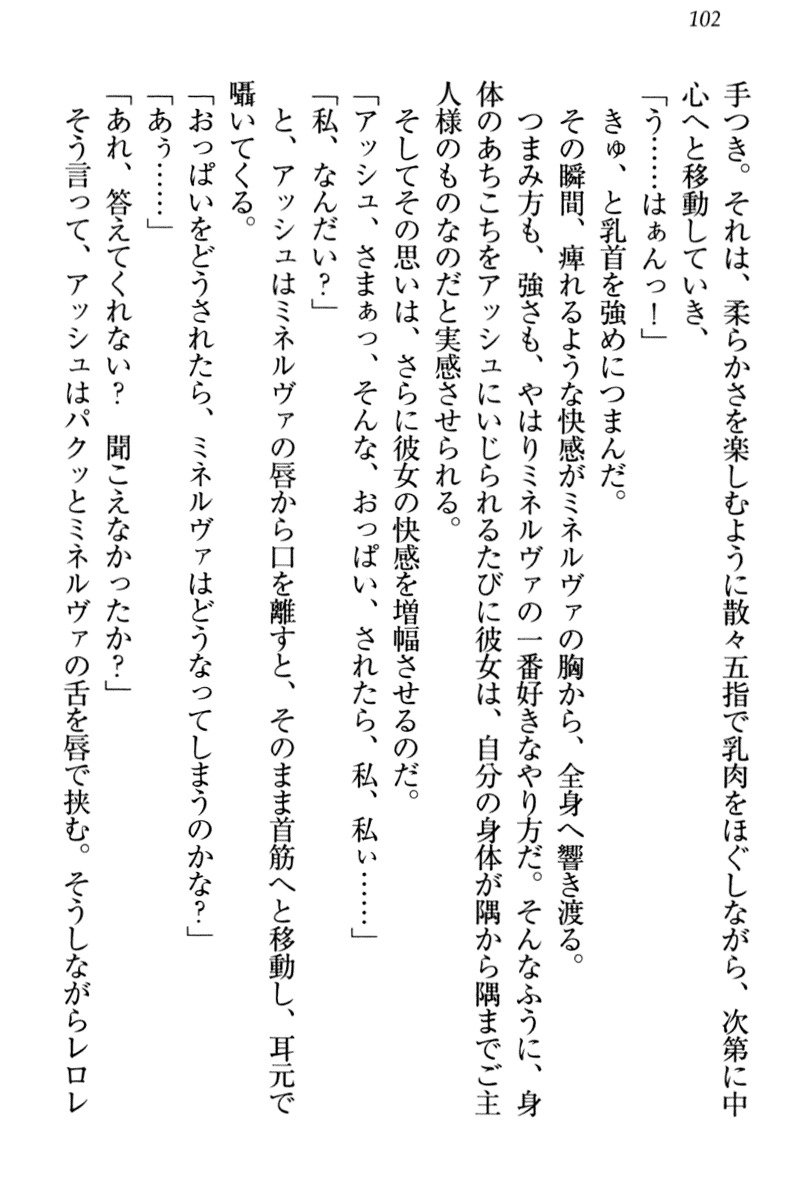 102
手つき。それは、柔らかさを楽しむように散々五指で乳肉をほぐしながら、次第に中
心へと移動していき、
「う……はぁんっ！」
きゅ、と乳首を強めにつまんだ。
その瞬間、痺れるような快感がミネルヴァの胸から、全身へ響き渡る。
つまみ方も、強さも、やはりミネルヴァの一番好きなやり方だ。そんなふうに、身
体のあちこちをアッシュにいじられるたびに彼女は、自分の身体が隅から隅までご主
人様のものなのだと実感させられる。
そしてその思いは、さらに彼女の快感を増幅させるのだ。
「アッシュ、さまぁっ、そんな、おっぱい、されたら、私、私ぃ……」
「私、なんだい？」
と、アッシュはミネルヴァの唇から口を離すと、そのまま首筋へと移動し、耳元で
囁いてくる。
「おっぱいをどうされたら、ミネルヴァはどうなってしまうのかな？」
「あぅ……」
「あれ、答えてくれない？　聞こえなかったか？」
そう言って、アッシュはパクッとミネルヴァの舌を唇で挟む。そうしながらレロレ